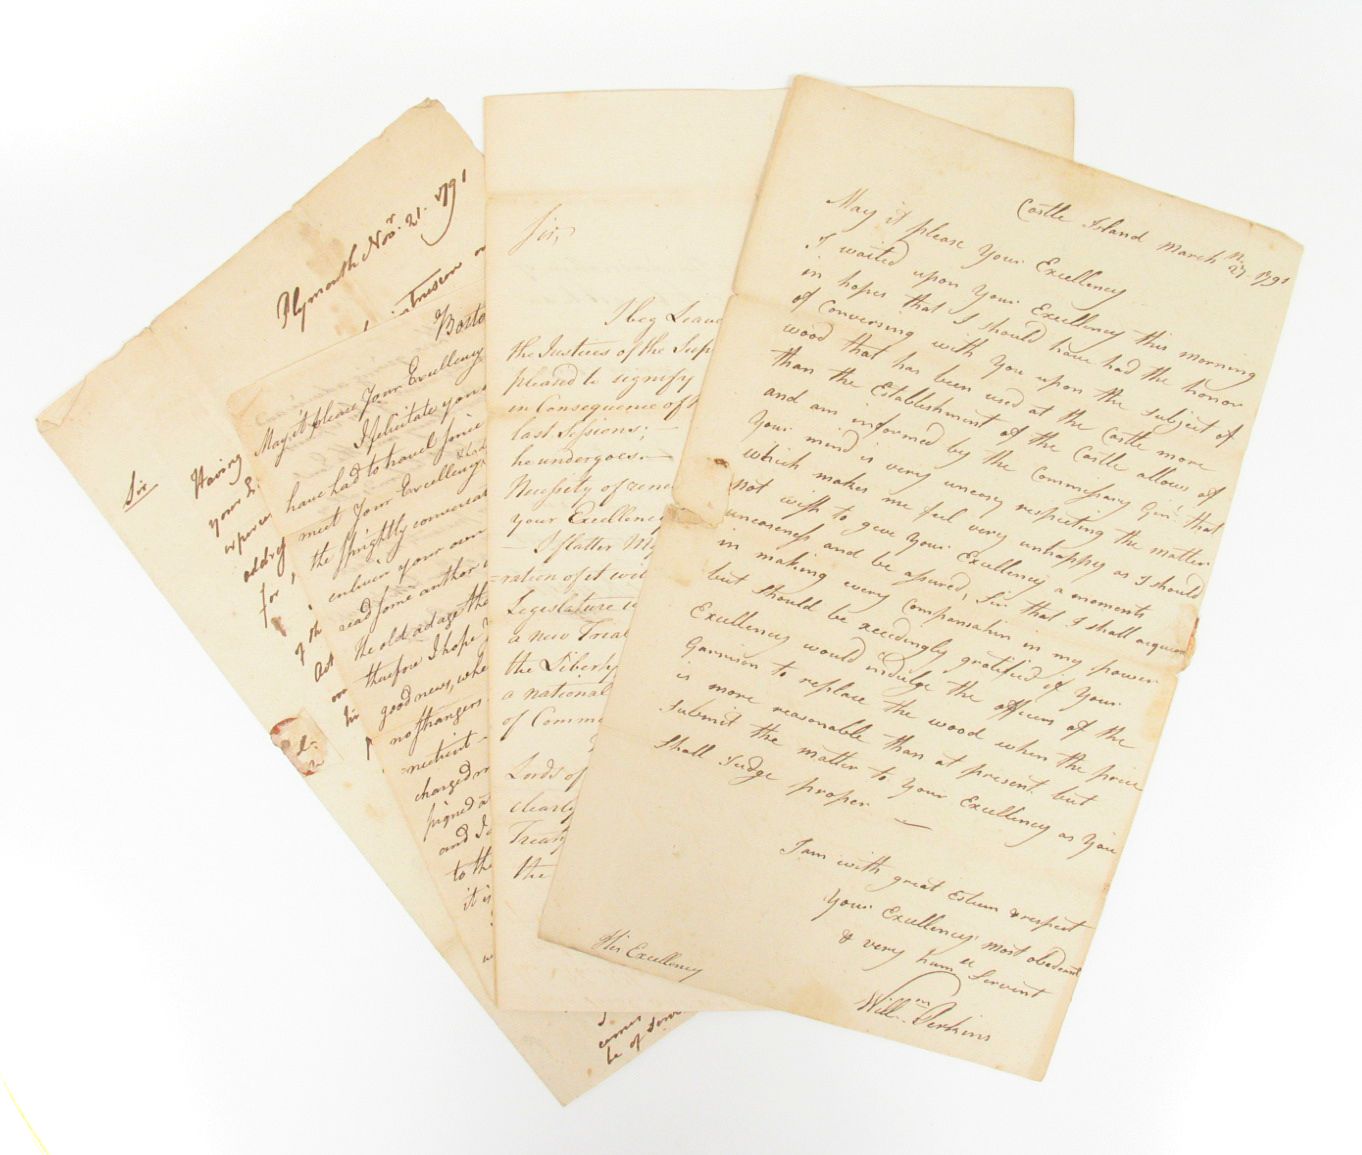 Plymouth Novr. 21. 1791
Sir
Having
your E
expence
addres
for
of th
Act
Bosto
May it please Your Excellency
I felicitate your
have had to travel since
meet Your Excellency
the sprightly conversat
enliven your own
read some author
the old adage tha
therefore I hope
good news, whe
no strangers
-necticut
charged
signed a
and I
to the
it is
be of some
Sir,
I beg Leave
the Justices of the Sup
pleased to signify
in Consequence of
last Sessions; —
he undergoes —
Necessity of rene
your Excellency
— I flatter My
=ration of it wil
Legislature w
a new Treat
the Liberty
a national
of Comme
Lords of
clearly
Treat
the
Castle Island March 27th 1791
May it please Your Excellency
I waited upon Your Excellency this morning
in hopes that I should have had the honor
of Conversing with You upon the subject of
wood that has been used at the Castle more
than the Establishment of the Castle allows of
and am informed by the Commissary Genl. that
Your mind is very uneasy respecting the matter
which makes me feel very unhappy as I should
not wish to give Your Excellency a moments
uneasiness and be assured, Sir that I shall acquiesce
in making every Compensation in my power
but should be exceedingly gratified if Your
Excellency would indulge the officers of the
Garrison to replace the wood when the price
is more reasonable than at present, but
submit the matter to Your Excellency as You
shall Judge proper —
I am with great Esteem & respect
Your Excellency's most obedient
& very humle Servant
Willm. Perkins
His Excellency